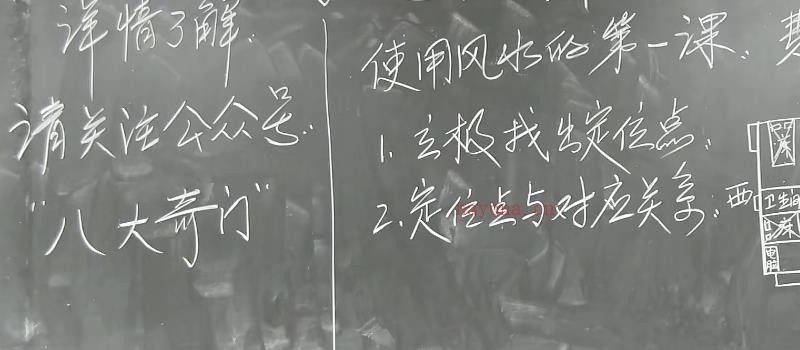 详情了解.
请关注公众号.
"八大奇门"
使用风水的第一课.
1.立极找出定位点.
2.定位点与对应关系.
西
床
卫生间
床
电脑